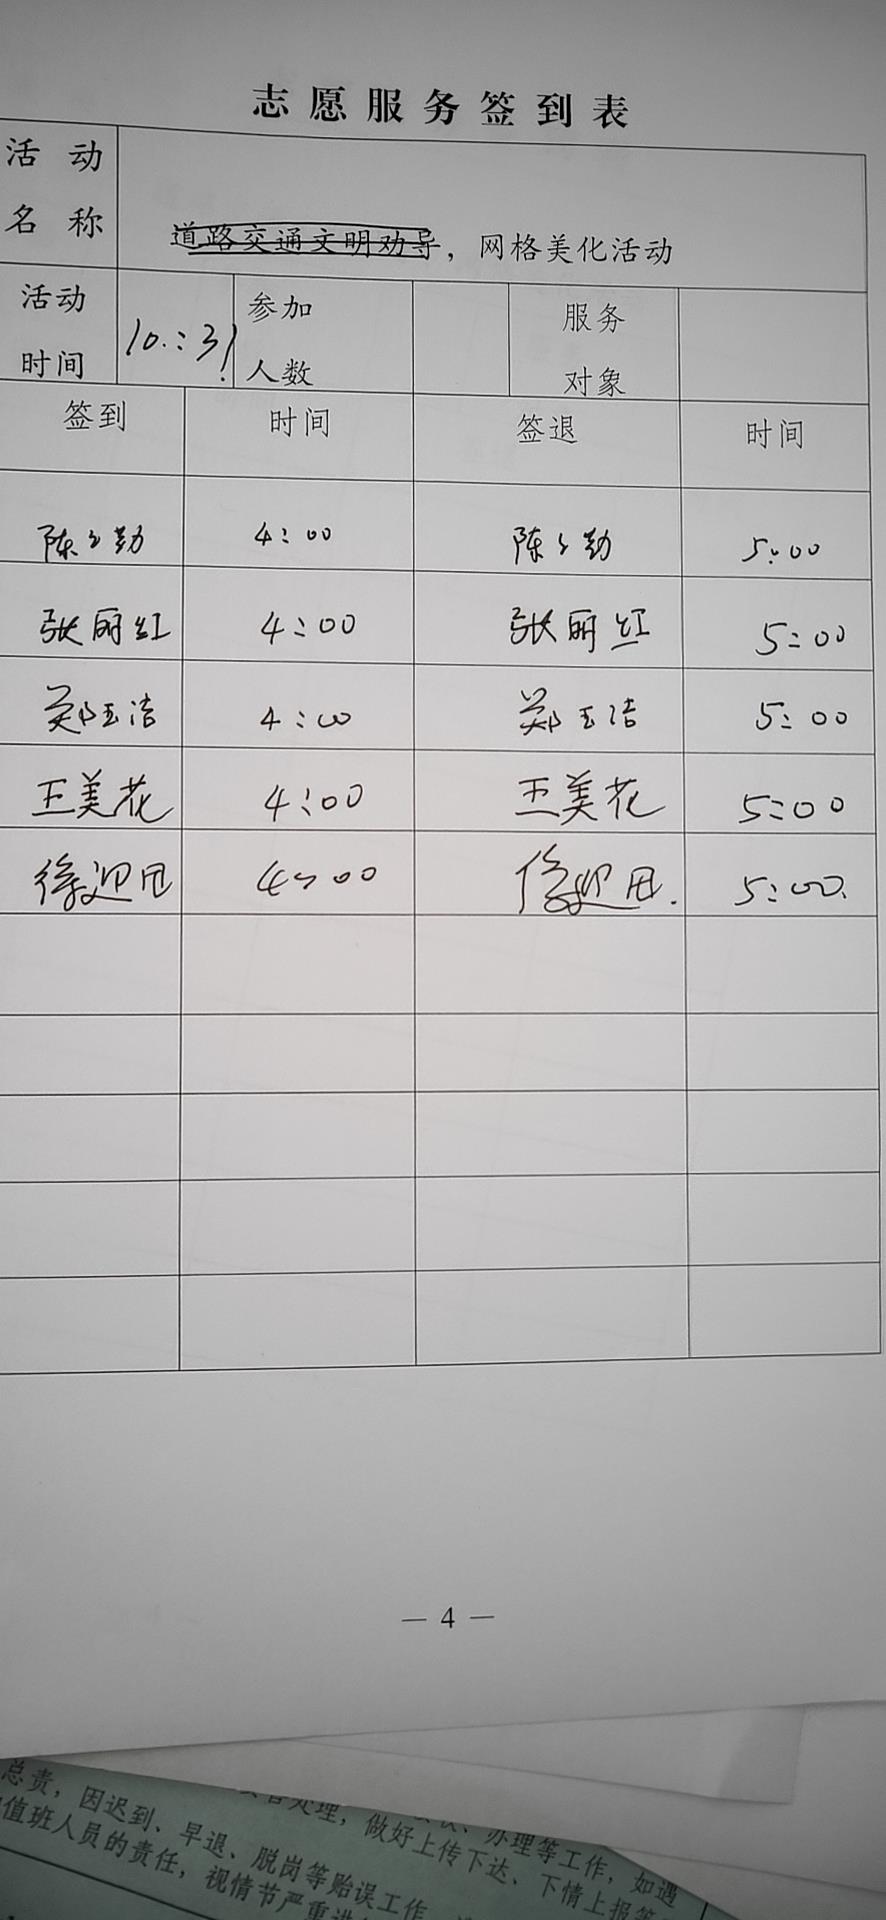 志愿服务签到表
活动名称 道路交通文明劝导，网格美化活动
活动时间 10.:31 参加人数 服务对象
签到 时间 签退 时间
陈 勤 4:00 陈 勤 5:00
张丽红 4:00 张丽红 5:00
郑玉洁 4:00 郑玉洁 5:00
王美花 4:00 王美花 5:00
徐迎 4:00 徐迎 5:00
— 4 —
总责，处理，做好上传下达、下情上报等
因迟到、早退、脱岗等贻误工作 办理等工作，如遇
值班人员的责任，视情节严重